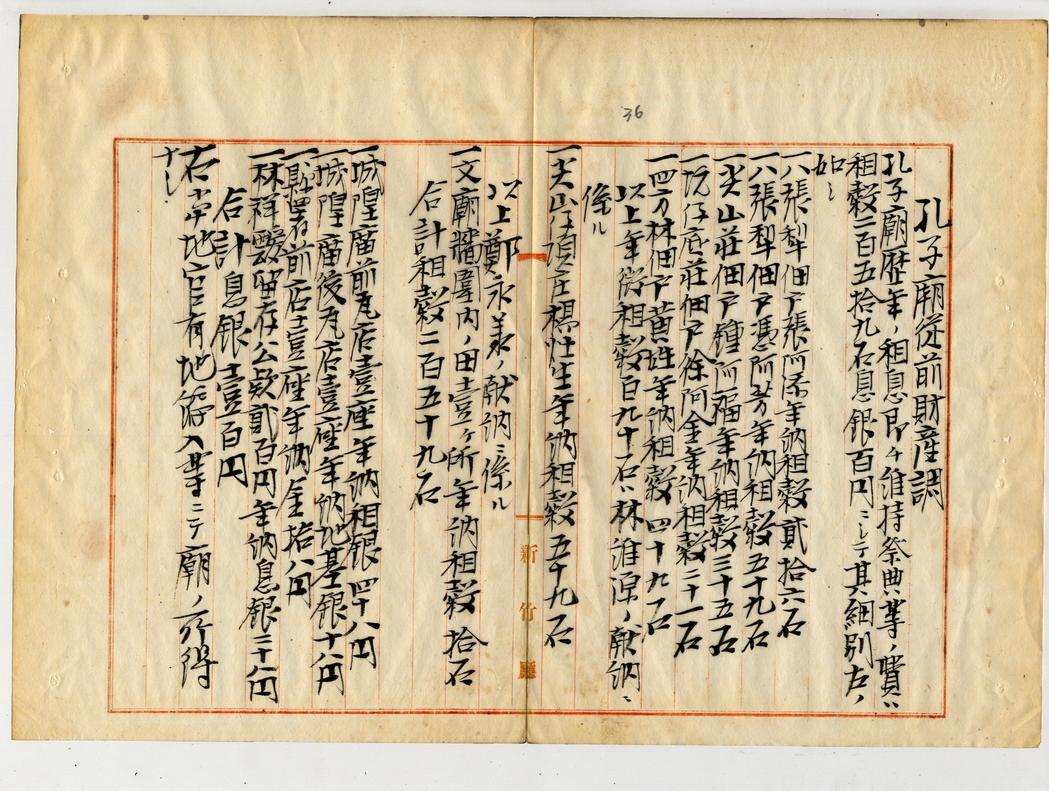 36
孔子廟從前財產調
孔子廟歷年ノ租息即チ維持祭典等ノ費ハ
租穀二百五拾九石息銀百円ニシテ其細別左ノ
如シ
一八張犂佃戶張阿添年納租穀貳拾六石
一八張犂佃戶馮阿芳年納租穀五十九石
一尖山莊佃戶鍾阿福年納租穀三十五石
一坑仔底莊佃戶徐阿金年納租穀二十一石
一四方林佃戶黃 年納租穀四十九石
以上年徵租穀百九十石ハ林 ノ獻納ニ
係ル
一尖山仔頂庄楊 生年納租穀五十九石
以上鄭永 ノ獻納ニ係ル
一文廟 內ノ田壹ヶ所年納租穀拾石
合計租穀二百五十九石
一城隍廟前瓦店壹座年納租銀四十八円
一城隍廟後瓦店壹座年納地基銀十八円
一縣署前店壹座年納金拾八円
一林祥靉留存公款貳百円年納息銀三十八円
合計息銀壹百円
右 地官有地 入等ニテ廟ノ所得
ナシ
新竹廳